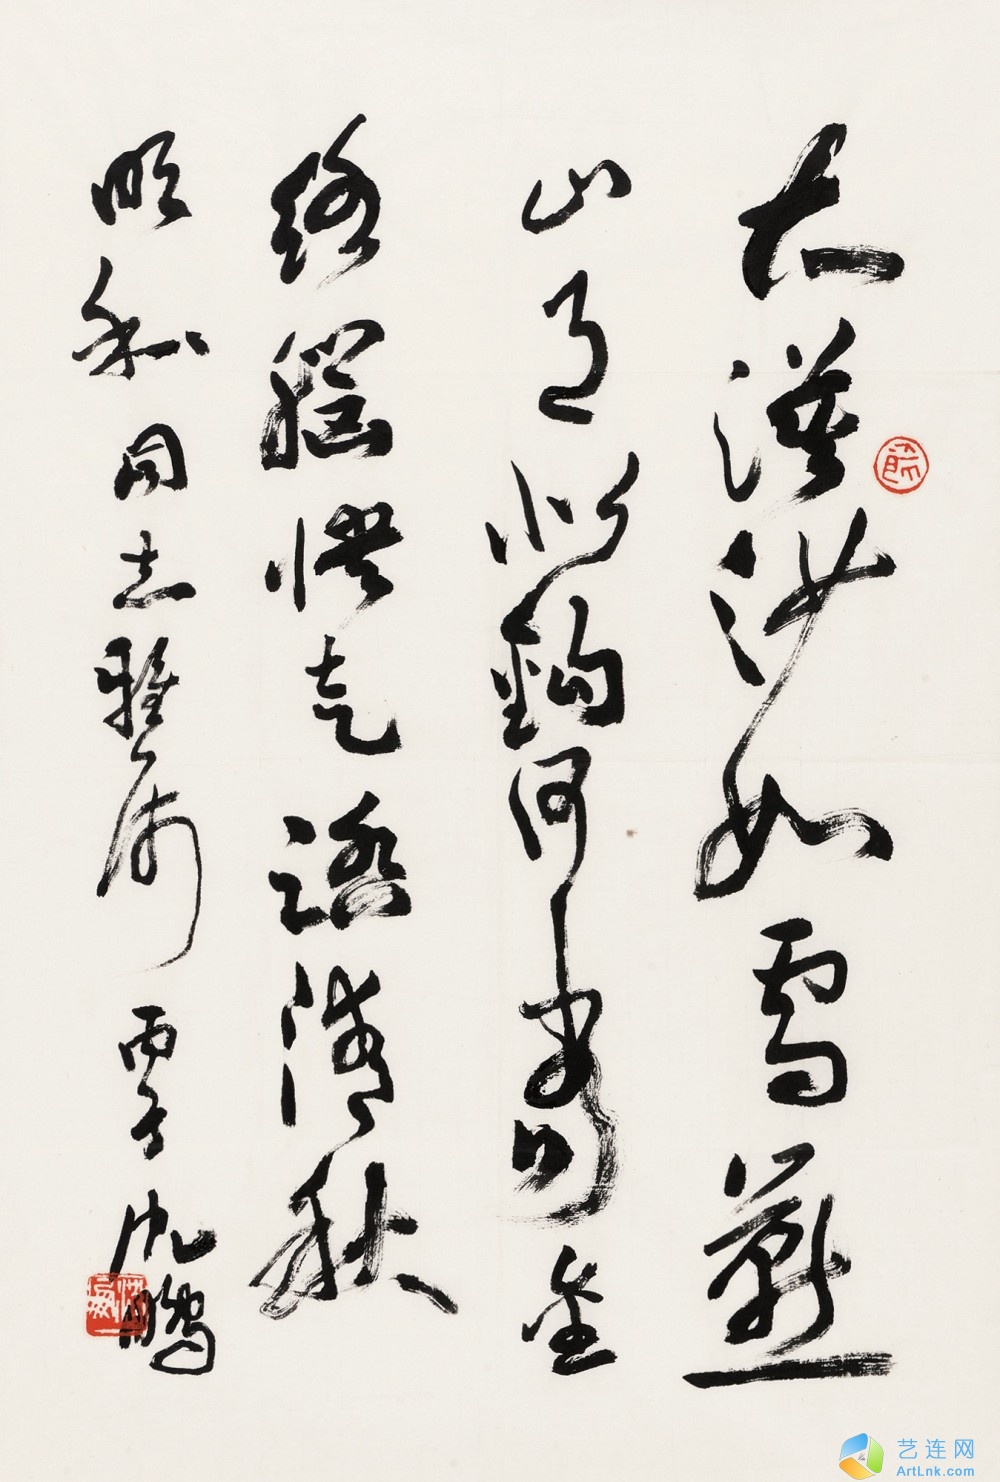 大漠沙如雪燕
山月似鉤何當
金
絡腦快走踏清秋
順利同志雅屬 丙子 沈鵬
艺连网
ArtLnk.com